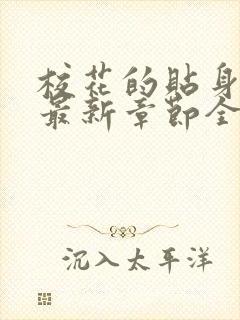 校花的贴身
最新章节全
沉入太平洋